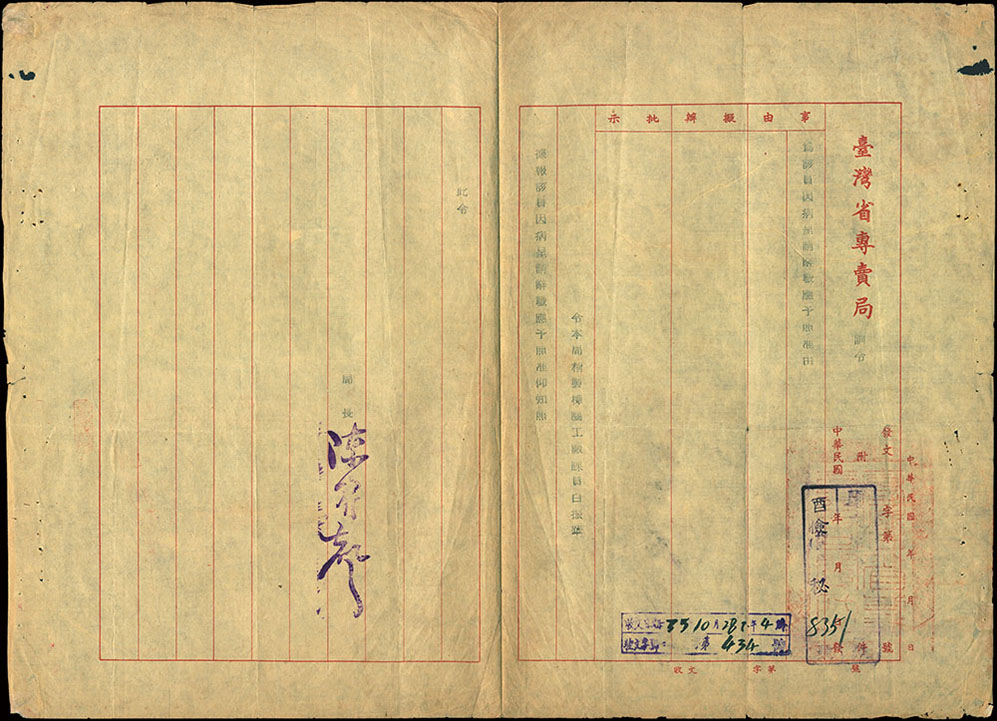 中華民國 年 月 日
發文 字第 號
附 件
中華民國 年 月 發
臺灣省專賣局 訓令
酉儉 秘
8351
事由擬辦批示
為該員因病呈請辭職應予照准由
令本局精製樟腦工廠課員白振
據報該員因病呈請辭職應予照准仰知照
此令
局長
35 10月28 午4時
434號
收文 字第 號